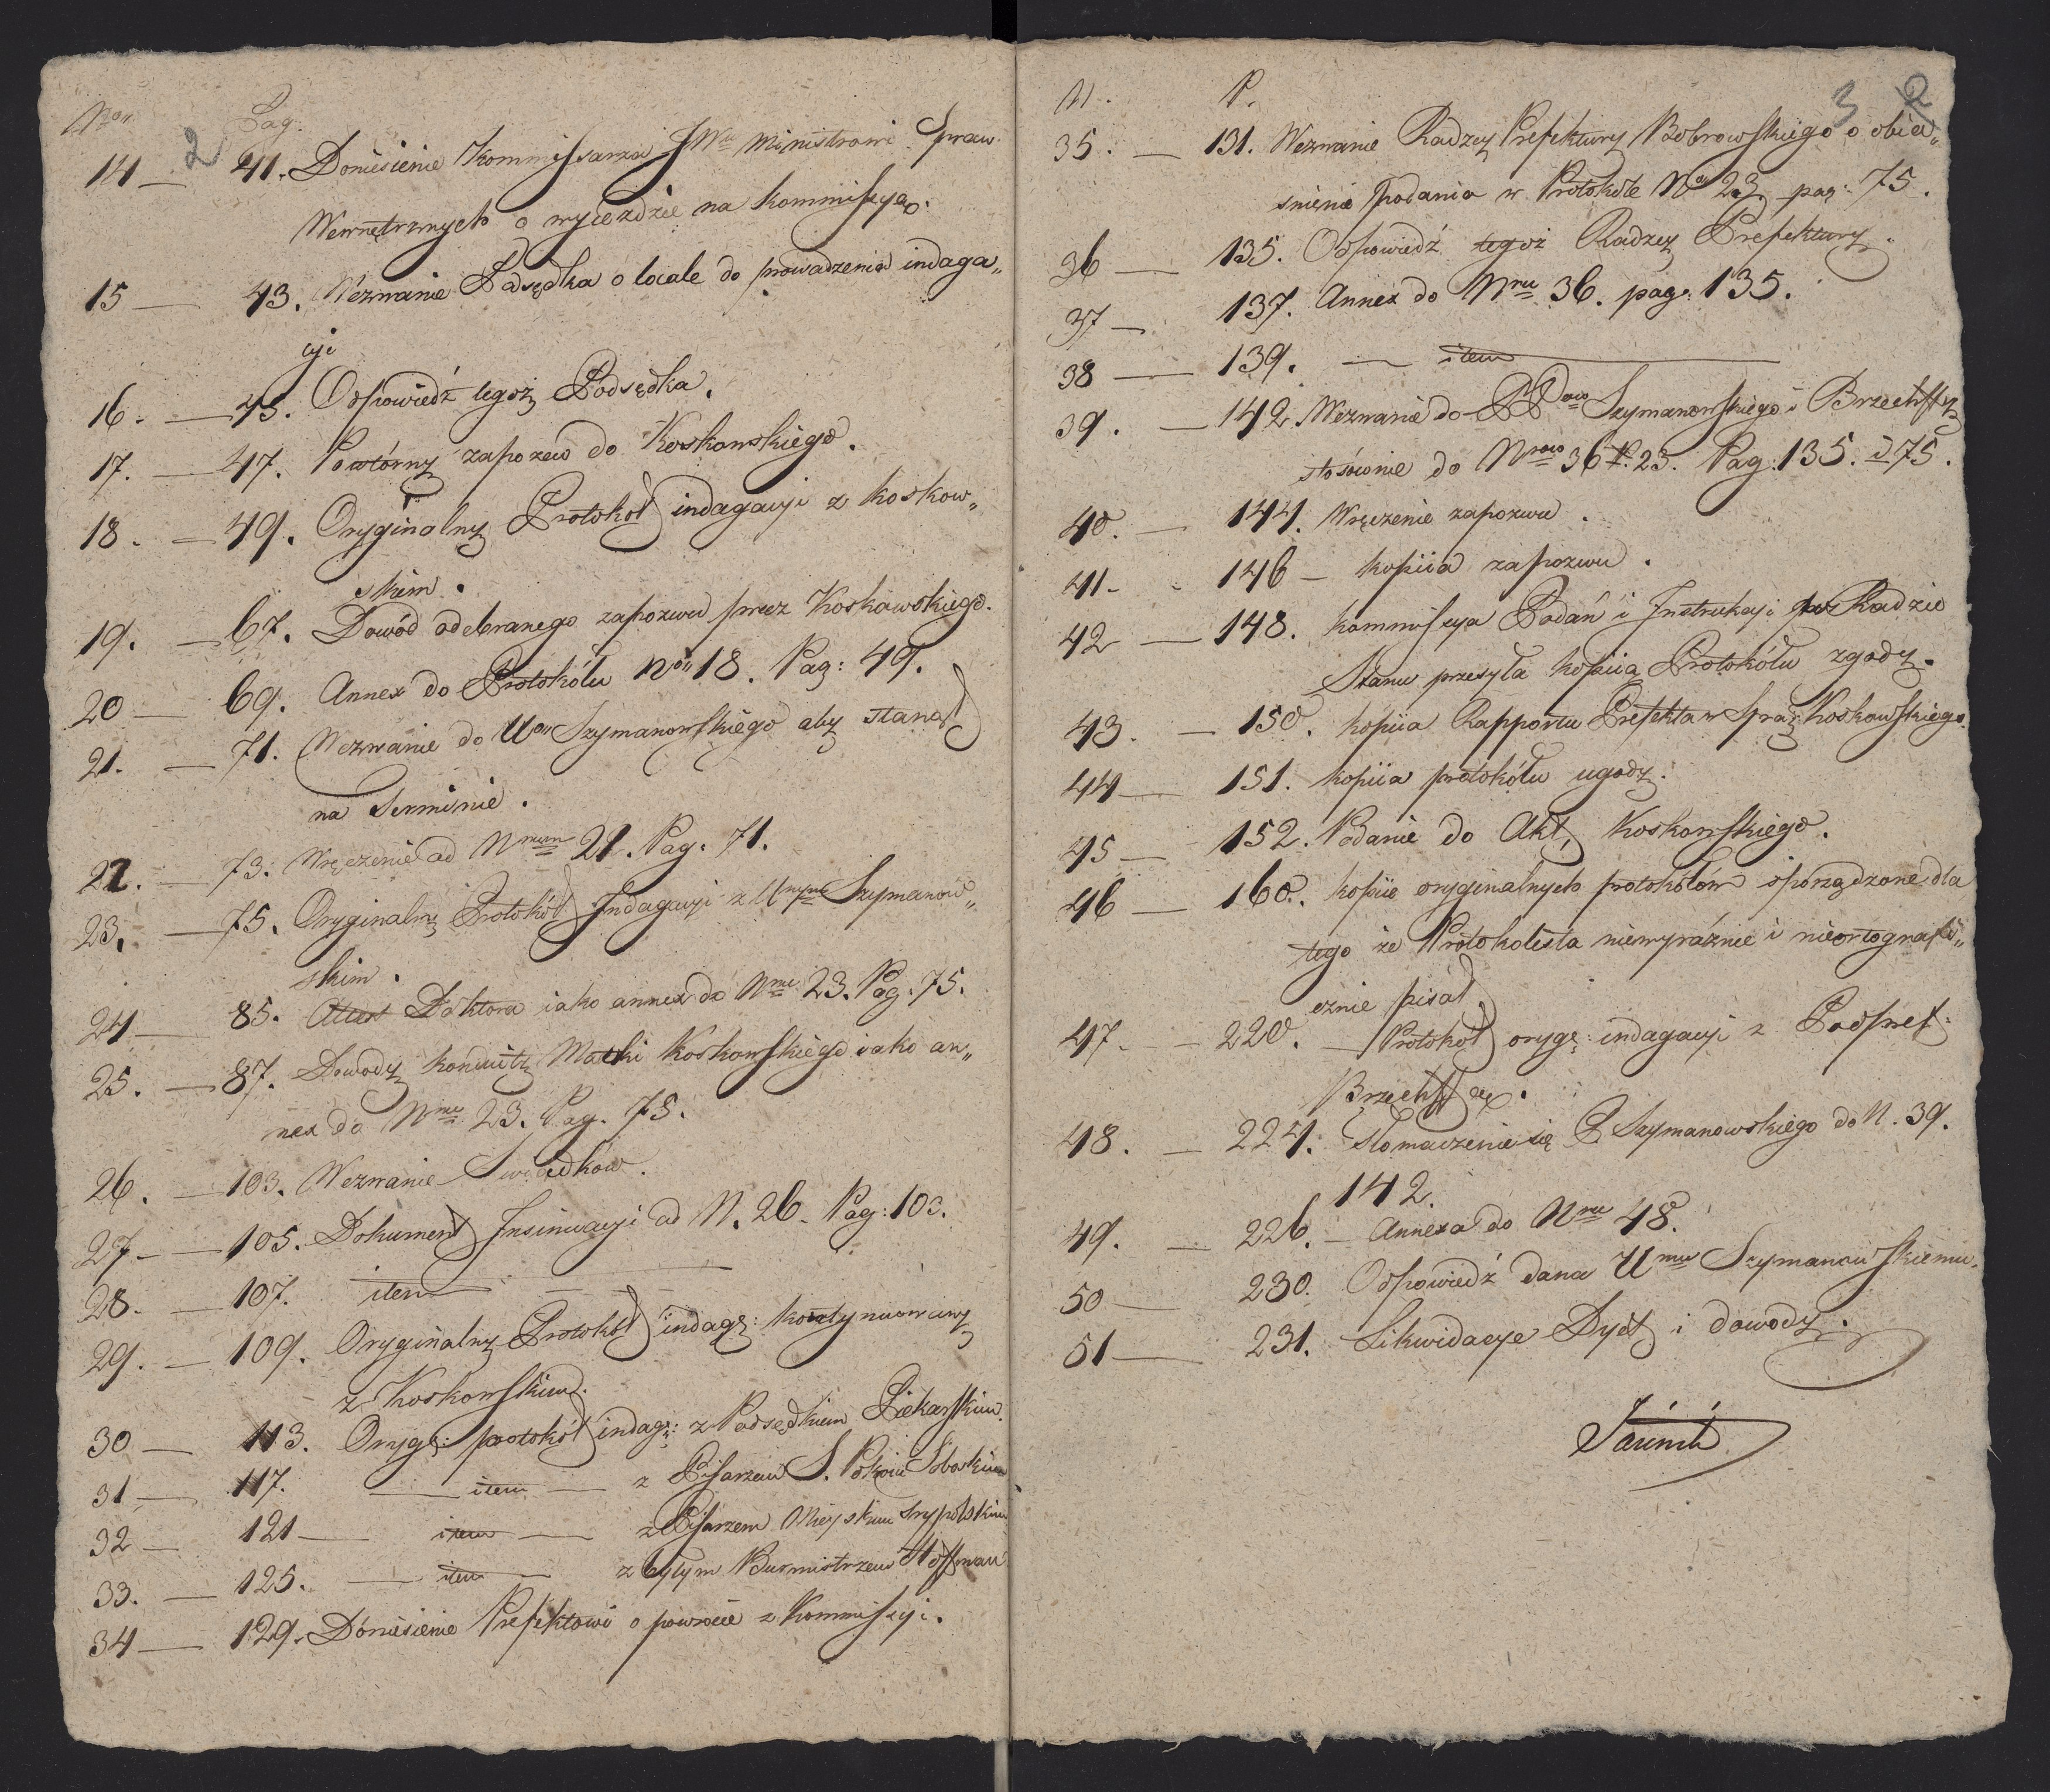 Nro Pag.
2
14 — 41. Doniesienie Kommissarza JWu Ministrowi Spraw
Wewnętrznych o wyieździe na kommissyą.
15 — 43. Wezwanie Podsędka o locale do prowadzenia indaga„
cyi
16. — 45. Odpowiedź tegoż Podsędka.
17. — 47. Powtórny zapozew do Koskowskiego.
18. — 49. Oryginalny Protokół indagacyi z Koskow„
skim.
19. — 67. Dowód odebranego zapozwu przez Koskowskiego.
20 — 69. Annex do Protokółu Nro 18. Pag: 49.
21. — 71. Wezwanie do Ugo Szymanowskiego aby stanął
na Terminie.
22. — 73. Wręczenie ad Nrum 21. Pag. 71.
23. — 75. Oryginalny Protokół Indagacyi z Unym Szymanow„
skim.
24 — 85. Atest Doktora iako annex do Nru 23. Pag. 75.
25. — 87. Dowody konduity Matki Koskowskiego iako an„
nex do Nru 23. Pag. 75.
26. — 103. Wezwanie Swiadków.
27 — 105. Dokument Insinuacyi ad N. 26. Pag: 103.
28. — 107. item
29. — 109. Oryginalny Protokół indag: kontynuowany
z Koskowskim.
30 — 113. Oryg: protokół indag: z Podsędkiem Piekarskim.
31 — 117. — item — z Pisarzem S. Pokoiu
32 — 121 — item — z Pisarzem Mieyskim Trypolskim
33. — 125. — item — z byłym Burmistrzem Hoffman
34 — 129. Doniesienie Prefektowi o powrocie z Kommissyi.
N. P. 3 2
35. — 131. Wezwanie Radzcy Prefektury Bobrowskiego o obia„
snienie podania w Protokole Nro 23. pag: 75.
36 — 135. Odpowiedź tegoż Radzcy Prefektury.
37 — 137. Annex do Nru 36. pag: 135.
38 — 139. — item
39. — 142. Wezwanie do PPow Szymanowskiego i Brzechffy
stósownie do Nrow 36 i 23. Pag: 135. i 75.
40. — 144. Wręczenie zapozwu.
41. — 146 — kopiia zapozwu.
42 — 148. Kommissya Podań i Instrukcyi przy Radzie
Stanu przesyła kopiią Protokółu zgody.
43. — 150. kopiia Rapportu Prefekta w Spra: Koskowskiego.
44 — 151. kopiia protokółu ugody.
45 — 152. Podanie do Akt, Koskowskiego.
46 — 160. kopiie oryginalnych protokółów sporządzone dla
tego że Protokolista niewyraźnie i nieortografi„
cznie pisał.
47. — 220. — Protokół oryg: indagacyi z Podpref:
Brzechffą.
48. — 224. Tłomaczenie się P Szymanowskiego do N. 39.
142.
49. — 226. — Annexa do Nru 48.
50 — 230. Odpowiedź dana Umu Szymanowskiemu.
51 — 231. Likwidacye Dyet i dowody.